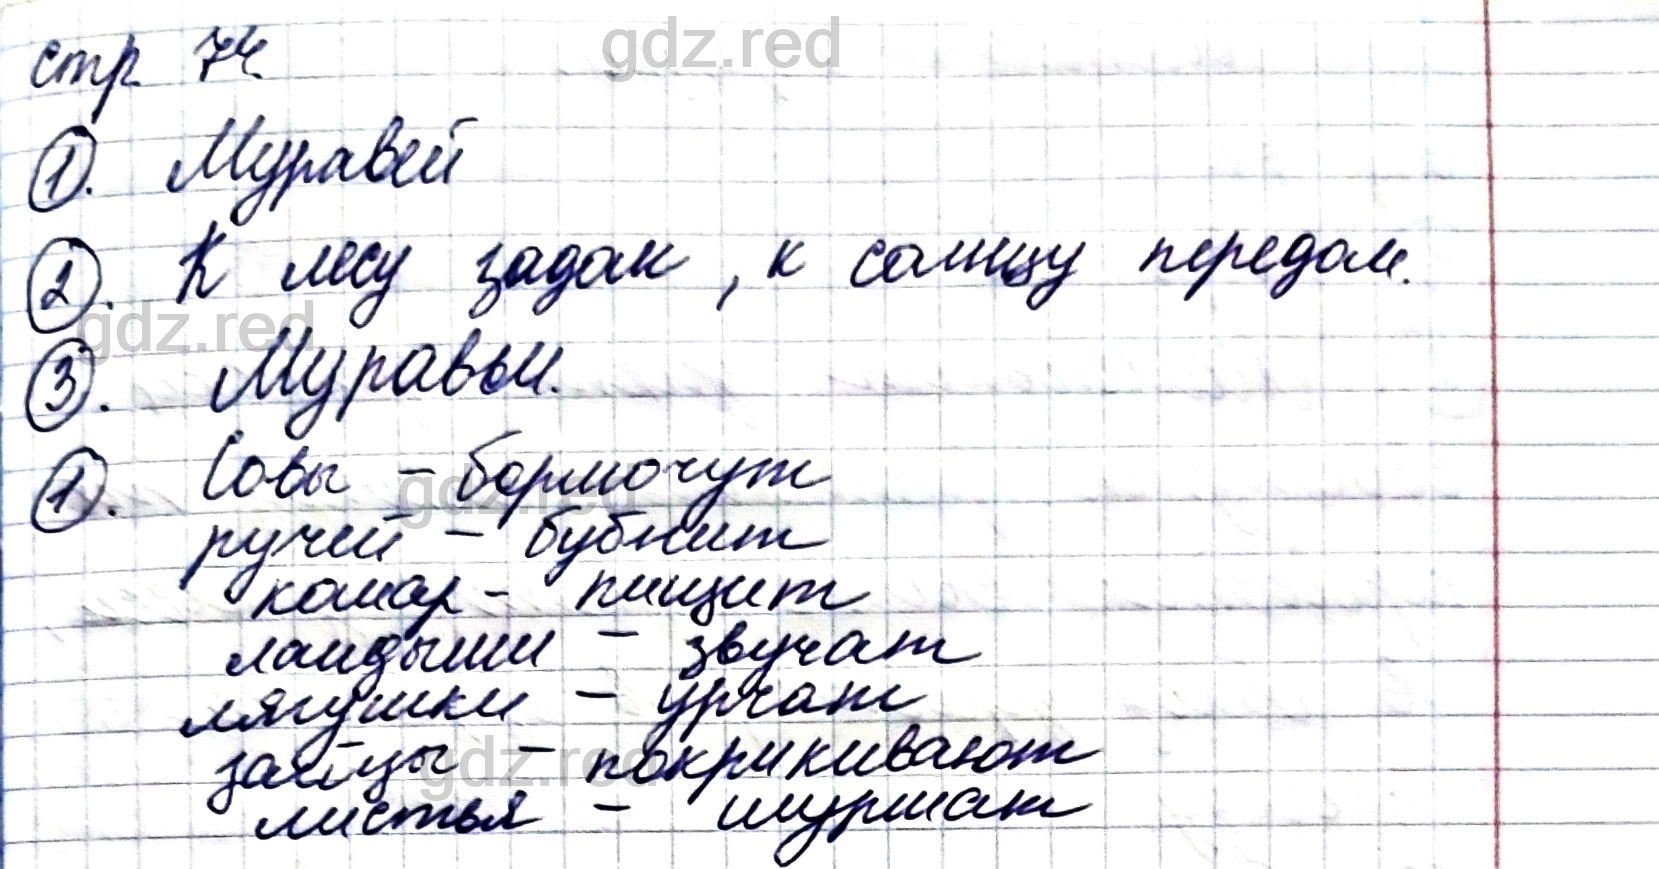 стр 74
gdz.red
1. Муравей
2. К лесу задом, к солнцу передом.
gdz.red
3. Муравьи.
1. Совы - бормочут
gdz.red
ручей - бубнит
комар - пищит
ландыши - звучат
лягушки - урчат
зайцы - покрикивают
gdz.red
листья - шуршат